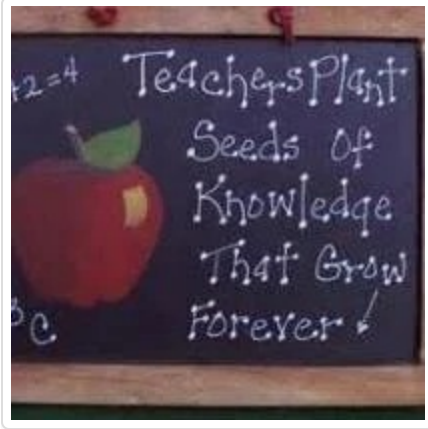 +2=4
Teachers Plant
Seeds Of
Knowledge
That Grow
Forever
C